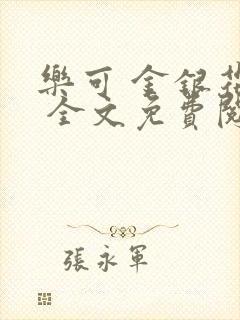 樂可 金銀花
全文免費閱
張永軍